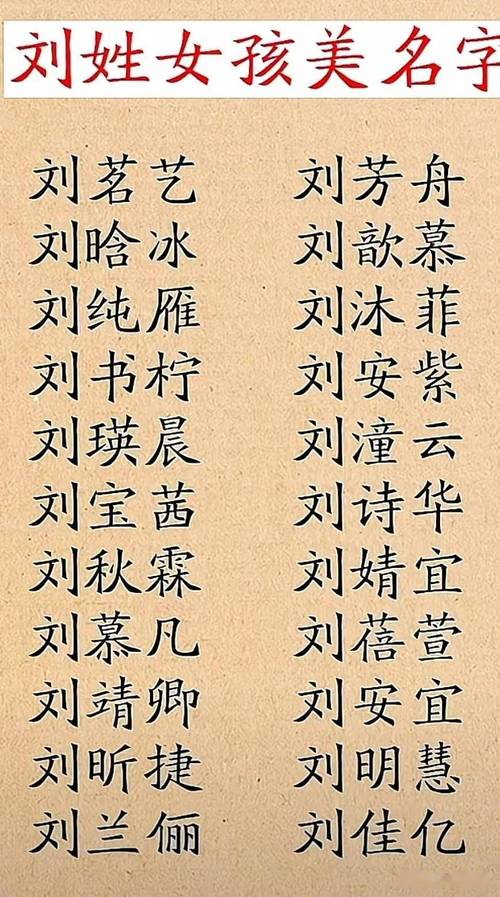 刘姓女孩美名字
刘茗艺 刘芳舟
刘晗冰 刘歆慕
刘纯雁 刘沐菲
刘书柠 刘安紫
刘瑛晨 刘潼云
刘宝茜 刘诗华
刘秋霖 刘婧宜
刘慕凡 刘蓓萱
刘靖卿 刘安宜
刘昕捷 刘明慧
刘兰俪 刘佳亿